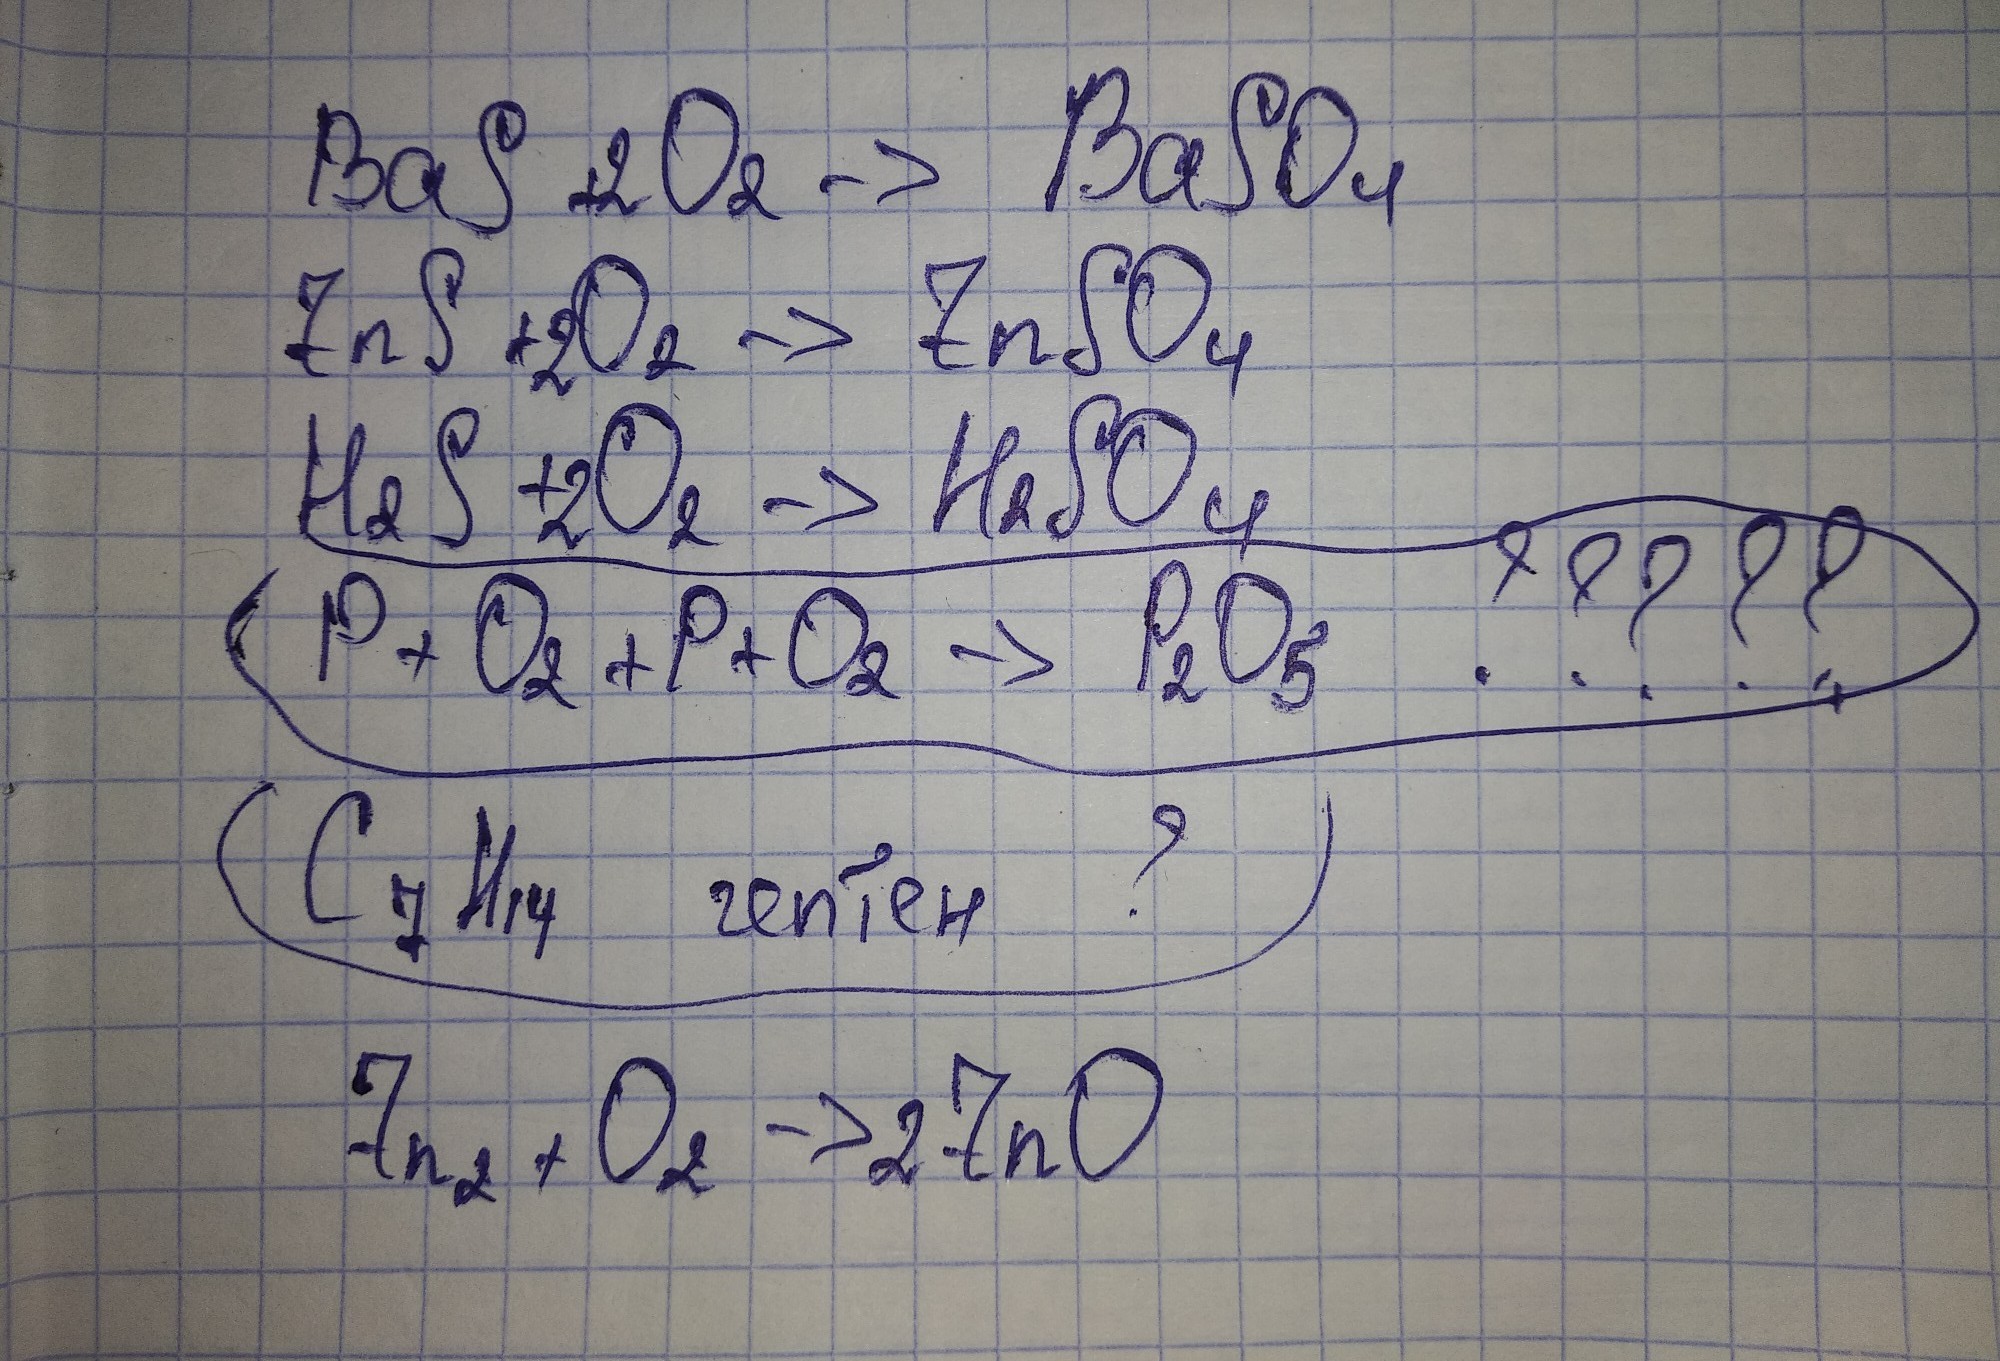 BaS + 2O₂ -> BaSO₄
ZnS + 2O₂ -> ZnSO₄
H₂S + 2O₂ -> H₂SO₄
P + O₂ + P + O₂ -> P₂O₅ ? ? ? ? ?
C₇H₁₄ гептен ?
Zn₂ + O₂ -> 2ZnO